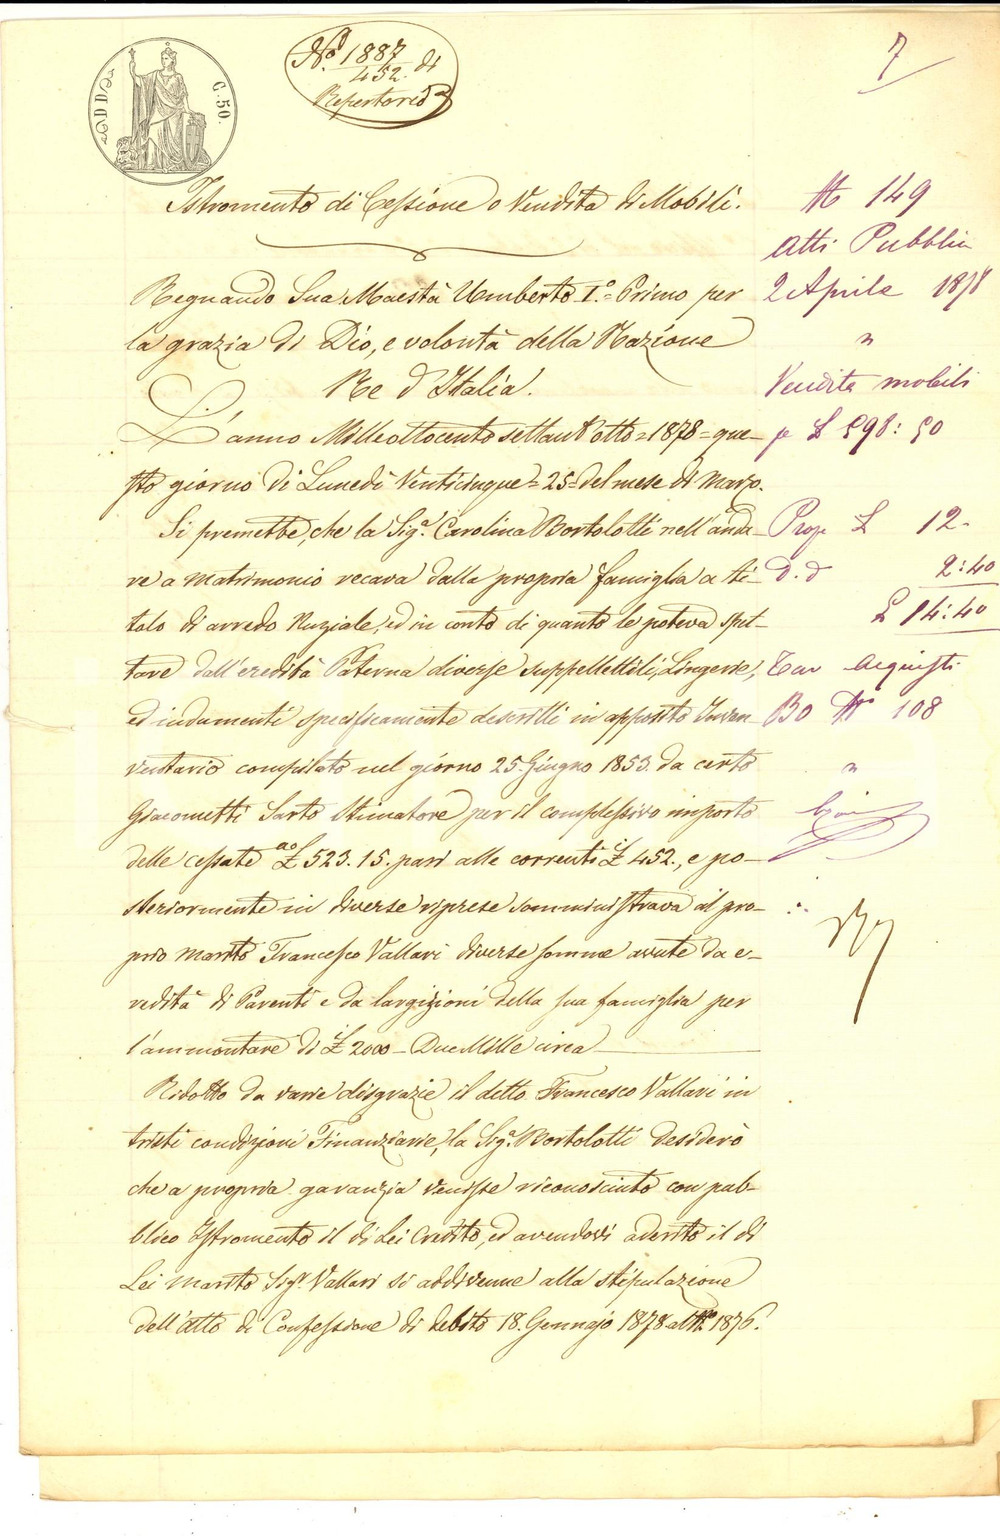 C. 50.
No. 1887/452. di
Repertorio
7
Istromento di Cessione o Vendita di Mobili.
Regnando Sua Maestà Umberto I.° Primo per
la grazia di Dio, e volontà della Nazione
Re d'Italia.
L'anno Milleottocento settant'otto = 1878 = que-
sto giorno di Lunedì Venticinque = 25 = del mese di Marzo.
Si premette, che la Sig.a Carolina Bortolotti nell'anda-
re a matrimonio recava dalla propria famiglia a ti-
tolo di arredo Nuziale, ed in conto di quanto le poteva spet-
tare dall'eredità Paterna diverse suppellettili, Lingerie,
ed indumenti specificamente descritti in apposito Inven-
ventario compilato nel giorno 25. Giugno 1853. da certo
Giacometti Sarto Stimatore per il complessivo importo
delle cessate £ 523. 15. pari alle correnti £ 452., e po-
steriormente in diverse riprese somministrava al pro-
prio marito Francesco Vallari diverse somme avute da e-
redità di Parenti e da largizioni della sua famiglia per
l'ammontare di £ 2000 - Due Mille circa
Ridotto da varie disgrazie il detto Francesco Vallari in
tristi condizioni Finanziarie, la Sig.a Bortolotti desiderò
che a propria garanzia venisse riconosciuto con pub-
blico Istromento il di Lei Credito, ed avendovi aderito il di
Lei marito Sig.r Vallari si addivenne alla stipulazione
dell'atto di Confessione di debito 18. Gennajo 1878 al N. 1876.
N 149
Atti Pubblici
2 Aprile 1878
Vendita mobili
p £ 598: 50
Prop £ 12-
D. d 2:40
£ 14:40
Tav Acquisti
Bo N 108